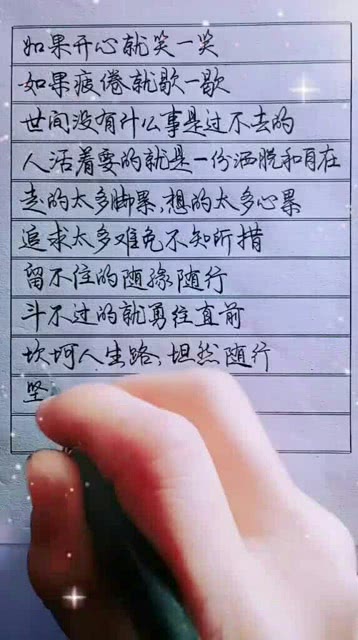 如果开心就笑一笑
如果疲倦就歇一歇
世间没有什么事是过不去的
人活着要的就是一份洒脱和自在
走的太多脚累,想的太多心累
追求太多难免不知所措
留不住的随缘随行
斗不过的就勇往直前
坎坷人生路,坦然随行
坚